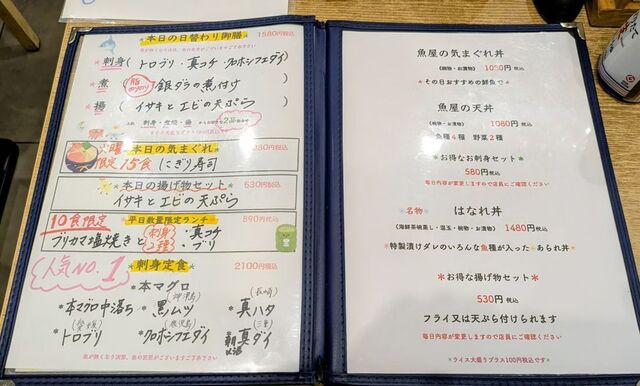 本日の日替わり御膳 1580円税込
刺身(トロブリ・真コチ・クロホシフエダイ)
煮(脂のりのり 銀ダラの煮付け)
揚(イサキとエビの天ぷら)
火曜限定15食 本日の気まぐれ
にぎり寿司
本日の揚げ物セット 530円税込
イサキとエビの天ぷら
10食限定 平日数量限定ランチ 890円税込
ブリカマ塩焼きと刺身2種・真コチ・ブリ
人気NO.1 刺身定食 2100円税込
・本マグロ
・本マグロ中落ち ・黒ムツ ・真ハタ(長崎)
・トロブリ ・クロホシフエダイ(鹿児島) ・真ダイ(三重)
魚屋の気まぐれ丼
(椀物・お漬物) 1080円税込
*その日おすすめの鮮魚で*
魚屋の天丼
(椀物・お漬物) 1080円税込
魚種4種 野菜2種
*お得なお刺身セット*
580円税込
毎日内容が変更しますので店員にご確認ください
名物 はなれ丼
(海鮮茶碗蒸し・温玉・椀物・お漬物) 1480円税込
*特製漬けダレのいろんな魚種が入った あられ丼*
*お得な揚げ物セット*
530円税込
フライ又は天ぷら付けられます
毎日内容が変更しますので店員にご確認ください
*ライス大盛りプラス100円税込です*